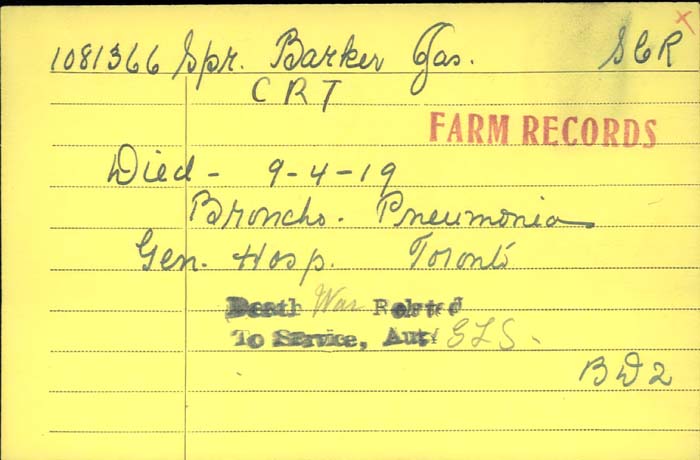 1081366 Spr. Barker Jas. SCR
CRT
FARM RECORDS
Died - 9-4-19
Broncho. Pneumonia
Gen. Hosp. Toronto
Death War Related
To Service, Aut. GLS.
BD2